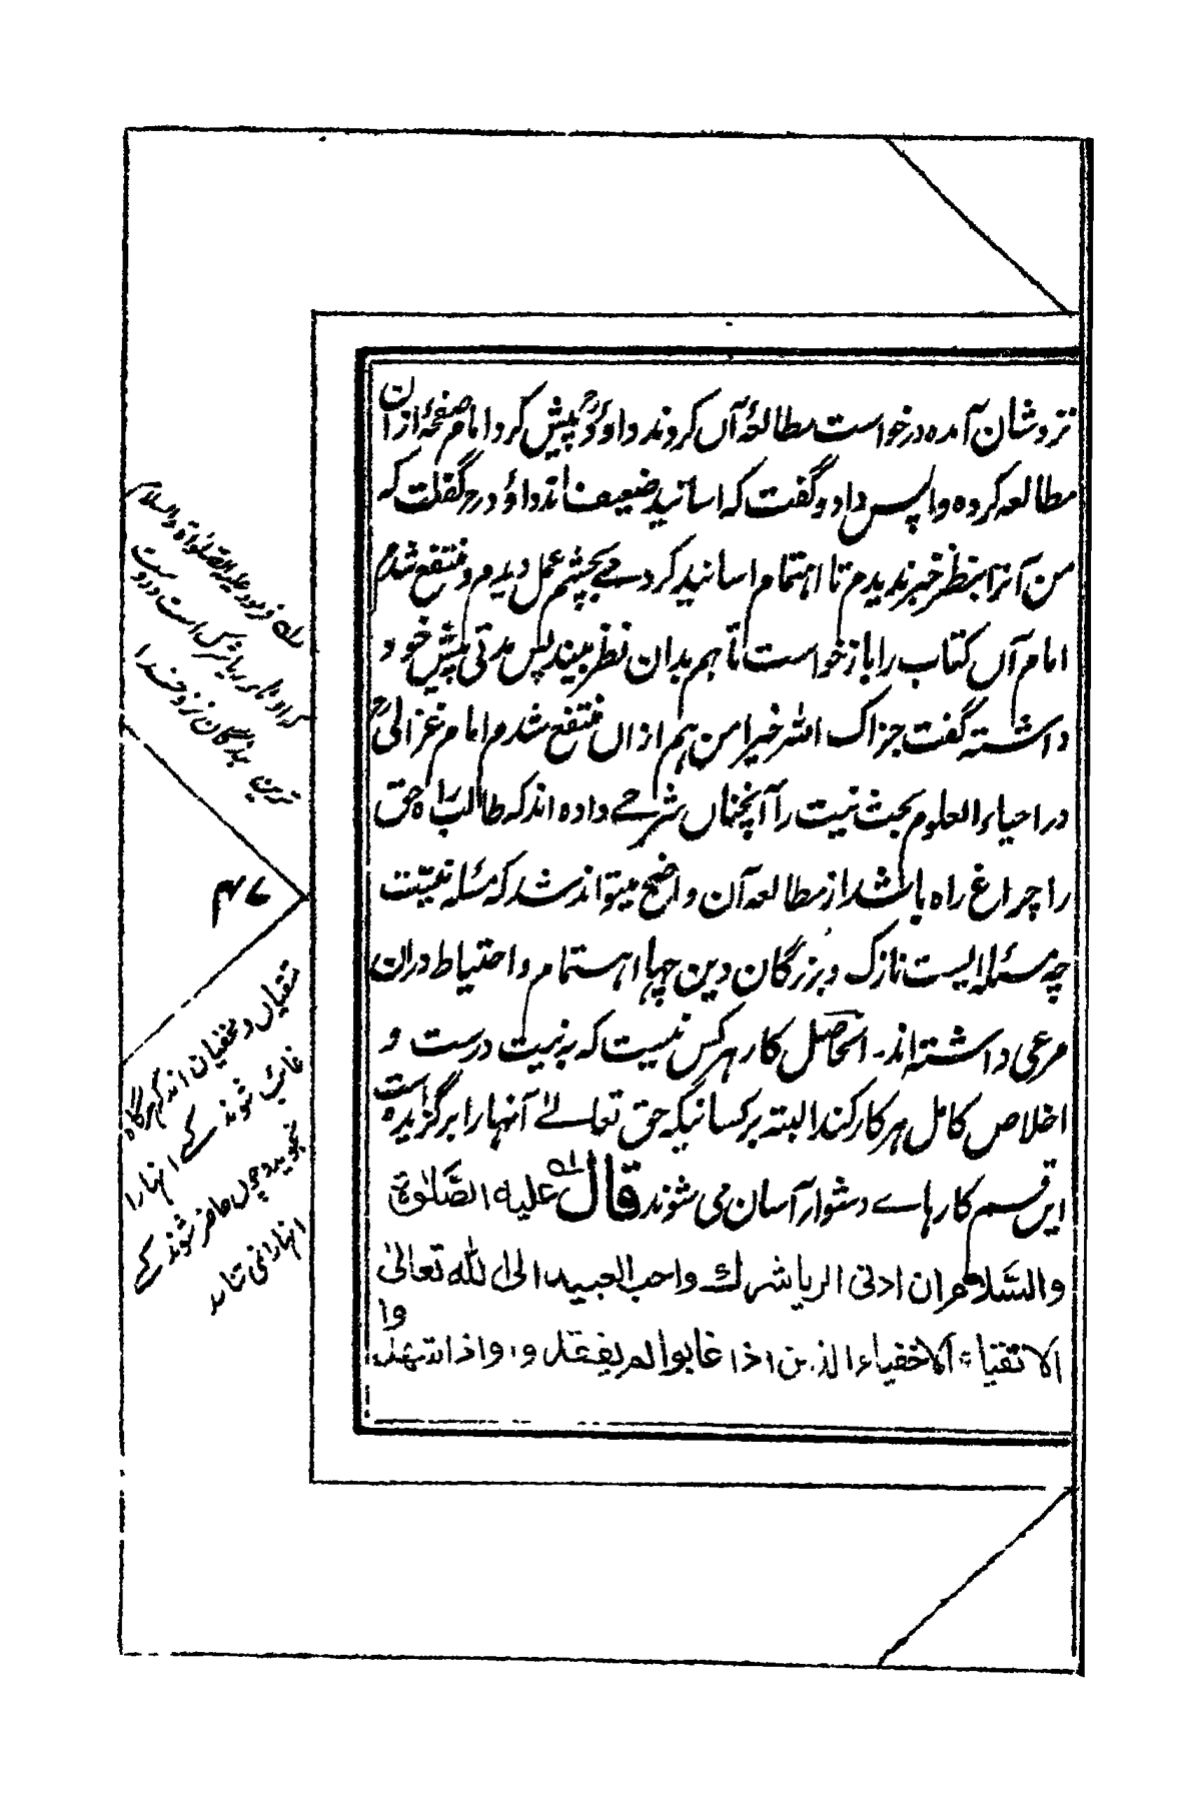 نزدشان آمده درخواست مطالعۂ آں کردند داؤدؒ پیش کرد امام صفحۂ ازان
مطالعہ کردہ واپس داد و گفت کہ اسانید ضعیف اند داؤدرح گفت کہ
من آنرا بنظر خبر ندیدم تا اہتمام اسانید کردمے بچشم عمل دیدم و منتفع شدم
امام آں کتاب را باز خواست تا ہم بدان نظر بیند پس مدتی پیش خود
داشتہ گفت جزاک اللہ خیرا من ہم ازاں منتفع شدم امام غزالیؒ
در احیاء العلوم بحث نیت را آنچناں شرحے دادہ اند کہ طالب راہ حق
را چراغ راہ باشد از مطالعہ آن واضح میتواند شد کہ مسئلہ نیّت
چہ مسئلہ ایست نازک و بزرگان دین چہا اہتمام و احتیاط دران
مرعی داشتہ اند۔ الحاصل کار ہر کس نیست کہ بہ نیت درست و
اخلاص کامل ہر کار کند البتہ بر کسانیکہ حق تعالےٰ آنہا را برگزیدہ است
ایں قسم کارہاے دشوار آسان می شوند قال علیہ الصَّلوٰۃ
والسَّلام ان ادنی الریا شرك واحب العبید الی اللّٰہ تعالیٰ
الاتقیاء الاخفیاء الذین اذا غابوا لم یفتقدوا واذا شهدوا
لہ فرمود علیہ الصّلوٰۃ والسلام
کہ ادناے ریا شرک است و دوست
ترین بندگان نزد خدا
۴۷
متقیاں و مخفیان اند کہ ہرگاہ
غائب شوند کسے انہا را
نجوید و چوں حاضر شوند کسے
انہا را نمی شناسد